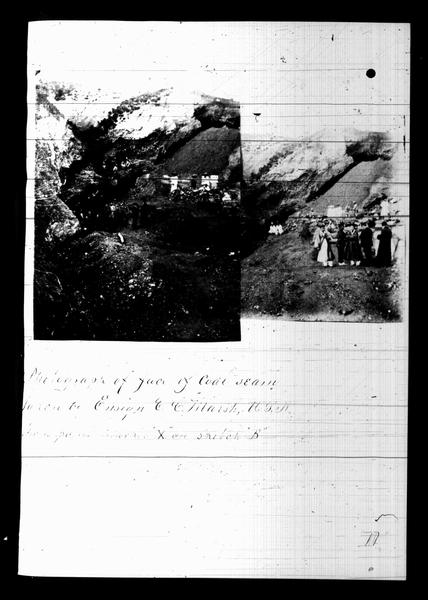 Photograph of face of Coal seam
taken by Ensign C C Marsh, U.S.N.
from point marked "X" on sketch "B"
77